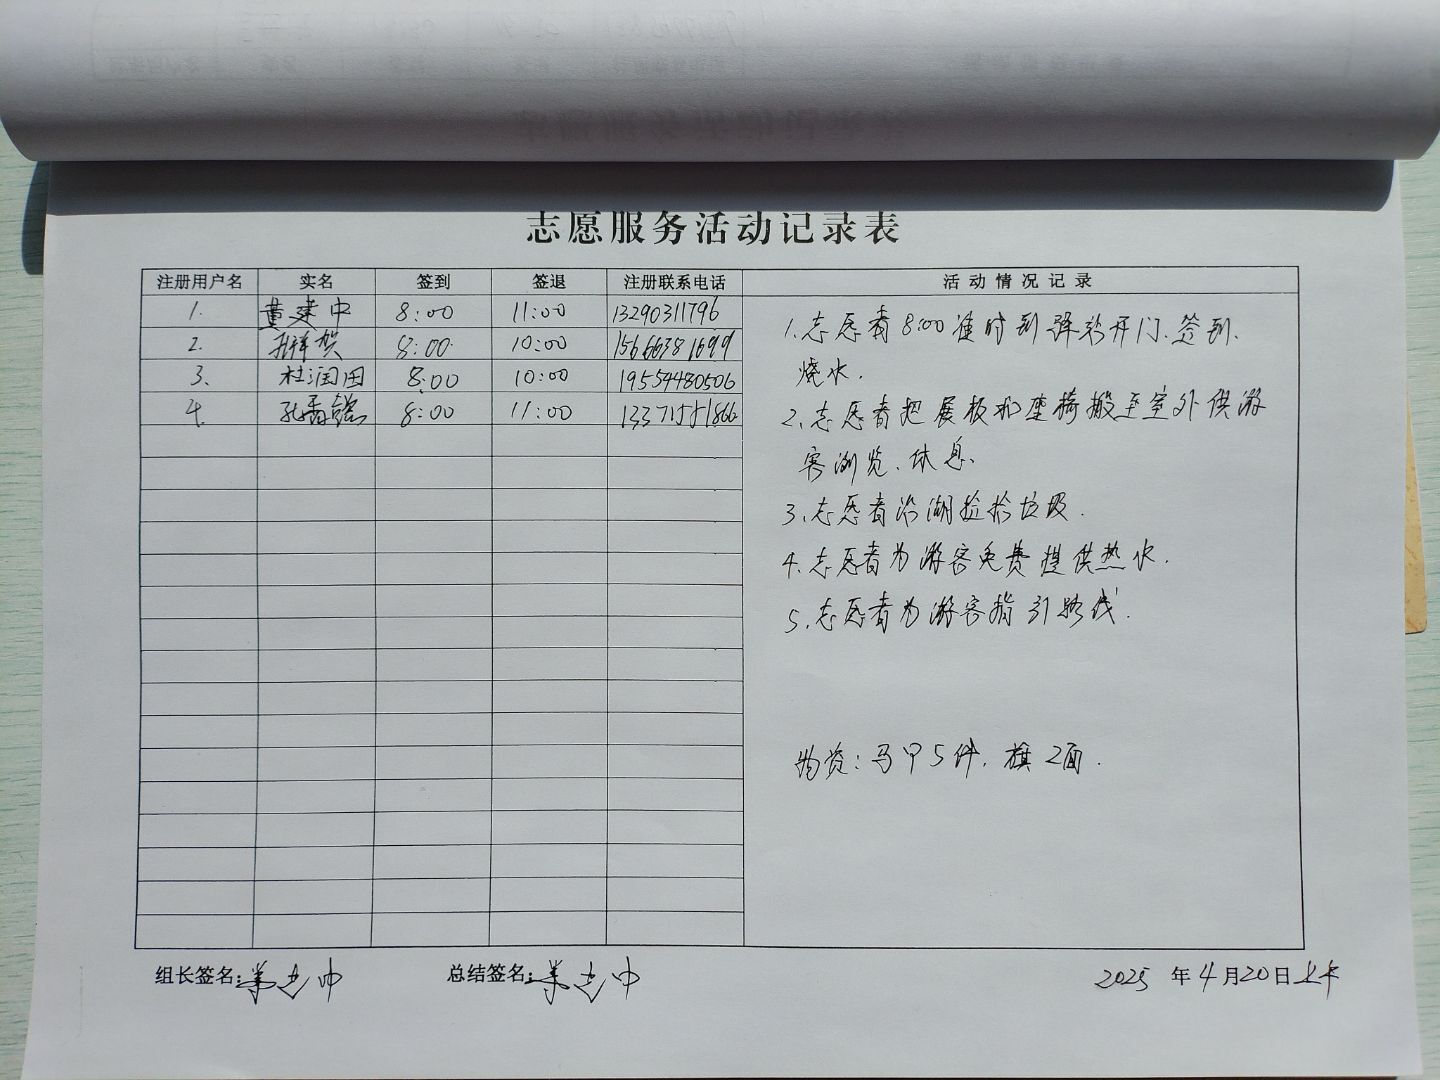 志愿服务活动记录表
注册用户名 实名 签到 签退 注册联系电话 活动情况记录
1. 董建中 8:00 11:00 13290311796
2. 祥贺 8:00 10:00 15666381699
3. 杜润田 8:00 10:00 19554480506
4. 孔香 8:00 11:00 13371551866
1.志愿者8:00准时到驿站开门、签到.
烧水.
2.志愿者把展板和座椅搬至室外供游
客浏览、休息、
3.志愿者沿湖捡拾垃圾.
4.志愿者为游客免费提供热水.
5.志愿者为游客指引路线.
物资:马甲5件.旗2面.
组长签名:董建中 总结签名:董建中 2025年4月20日上午